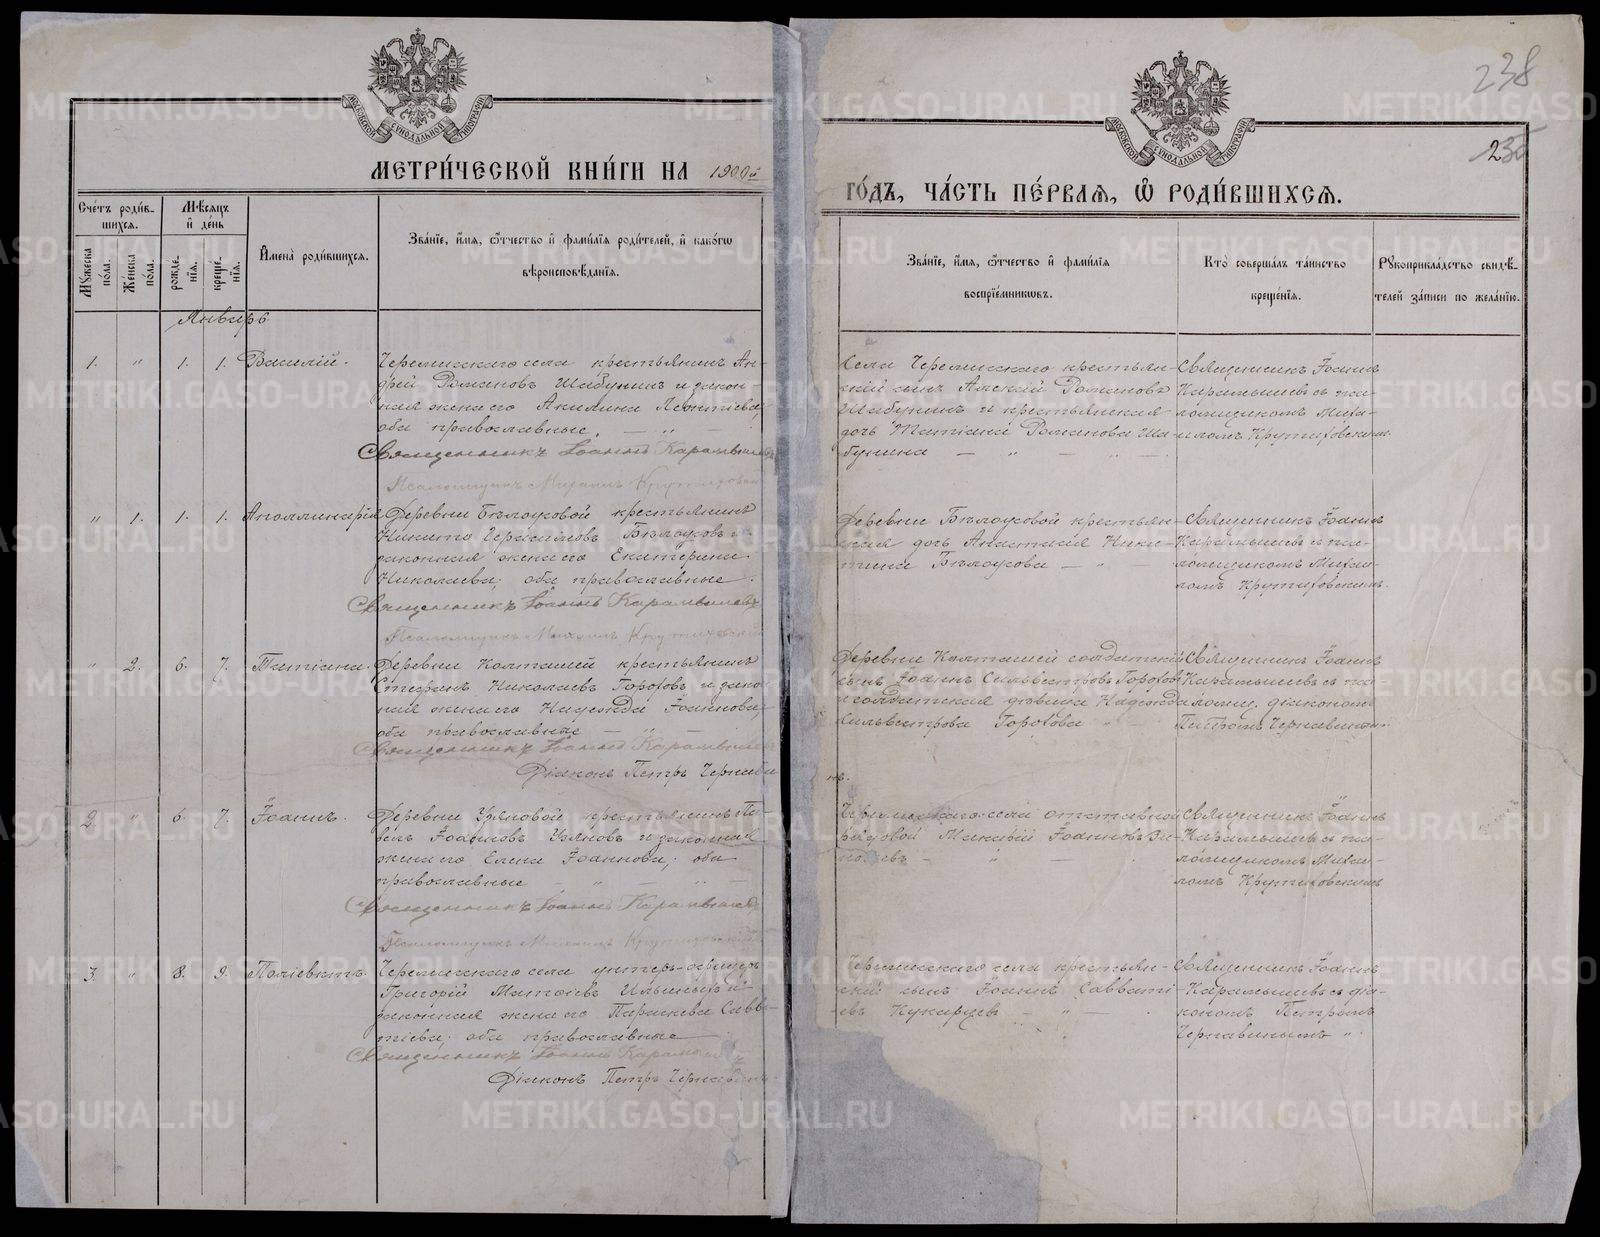 238
235
МОСКОВСКОЙ СѴНОДАЛЬНОЙ ТИПОГРАФІИ
МОСКОВСКОЙ СѴНОДАЛЬНОЙ ТИПОГРАФІИ
МЕТРИ́ЧЕСКОЙ КНИ́ГИ НА 1900й
ГО́ДЪ, ЧА́СТЬ ПЕ́РВАѦ, Ѡ РОДИ́ВШИХСѦ.
Сче́тъ роди́в-
шихся.
Мѣ́сяцъ
и де́нь
Мужеска по́ла.
Же́нска по́ла.
рожде́-
нїя.
креще́-
нїя.
Имена̀ роди́вшихся.
Зва́нїе, и́мя, ѻ́тчество и фами́лїя роди́телей, и како́гѡ
вѣроисповѣ́данїя.
Зва́нїе, и́мя, ѻ́тчество и фами́лїя
воспрїе́мниковъ.
Кто̀ соверша́лъ та́инство
креще́нїя.
Рукоприкла́дство свидѣ́-
телей за́писи по жела́нїю.
Январь
1. " 1. 1. Василій.
Черемисскаго села крестьянинъ Ан-
дрей Романовъ Шабунинъ и закон-
ная жена его Акилина Леонтіева,
оба православные. — " —
Священникъ Іоаннъ Карамышевъ
Псаломщикъ Михаилъ Крутиховскій
Села Черемисскаго крестьян-
скій сынъ Алексій Романовъ
Шабунинъ и крестьянская
дочь Татіана Романова Ша-
бунина — " — " —
Священникъ Іоаннъ
Карамышевъ съ пса-
ломщикомъ Миха-
иломъ Крутиховскимъ.
" 1. 1. 1. Аполлинарія
Деревни Бѣлоусовой крестьянинъ
Никита Герасимовъ Бѣлоусовъ и
законная жена его Екатерина
Николаева; оба православные.
Священникъ Іоаннъ Карамышевъ
Псаломщикъ Михаилъ Крутиховскій
Деревни Бѣлоусовой крестьян-
ская дочь Анастасія Ники-
тина Бѣлоусова — " —
Священникъ Іоаннъ
Карамышевъ съ пса-
ломщикомъ Михаи-
ломъ Крутиховскимъ.
" 2. 6. 7. Татіана.
Деревни Колташей крестьянинъ
Стефанъ Николаевъ Гороховъ и закон-
ная жена его Надежда Іоаннова,
оба православные — " —
Священникъ Іоаннъ Карамышевъ
Діаконъ Петръ Чернавинъ
Деревни Колташей солдатскій
сынъ Іоаннъ Сильвестровъ Гороховъ
и солдатская дѣвица Надежда
Сильвестрова Горохова " —
Священникъ Іоаннъ
Карамышевъ съ пса-
ломщ. діакономъ
Петромъ Чернавинымъ.
2. " 6. 7. Іоаннъ.
Деревни Узяновой крестьянинъ Па-
велъ Іоанновъ Узяновъ и законная
жена его Елена Іоаннова; оба
православные — " — " —
Священникъ Іоаннъ Карамышевъ
Псаломщикъ Михаилъ Крутиховскій
Черемисскаго села отставной
рядовой Макарій Іоанновъ
— " —
Священникъ Іоаннъ
Карамышевъ съ пса-
ломщикомъ Михаи-
ломъ Крутиховскимъ
3. " 8. 9. Поліевктъ.
Черемисскаго села унтеръ-офицеръ
Григорій Матѳіевъ Ильиныхъ и
законная жена его Параскева Савва-
тіева; оба православные
Священникъ Іоаннъ Карамышевъ
Діаконъ Петръ Чернавинъ
Черемисскаго села крестьян-
скій сынъ Іоаннъ Савваті-
евъ Кукарцевъ — " — .
Священникъ Іоаннъ
Карамышевъ съ діа-
кономъ Петромъ
Чернавинымъ ".
METRIKI.GASO-URAL.RU